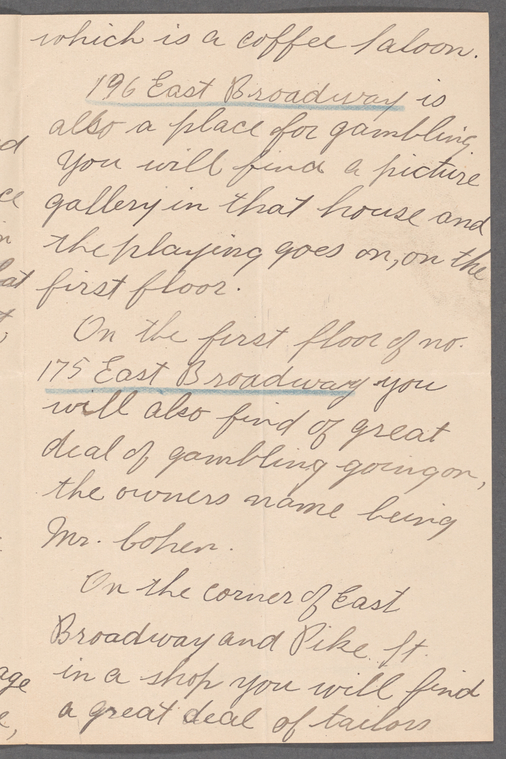 which is a coffee saloon.
196 East Broadway is
also a place for gambling
You will find a picture
gallery in that house and
the playing goes on, on the
first floor.
On the first floor of no.
175 East Broadway you
will also find of great
deal of gambling going on,
the owners name being
Mr. Cohen.
On the corner of East
Broadway and Pike St.
in a shop you will find
a great deal of tailors